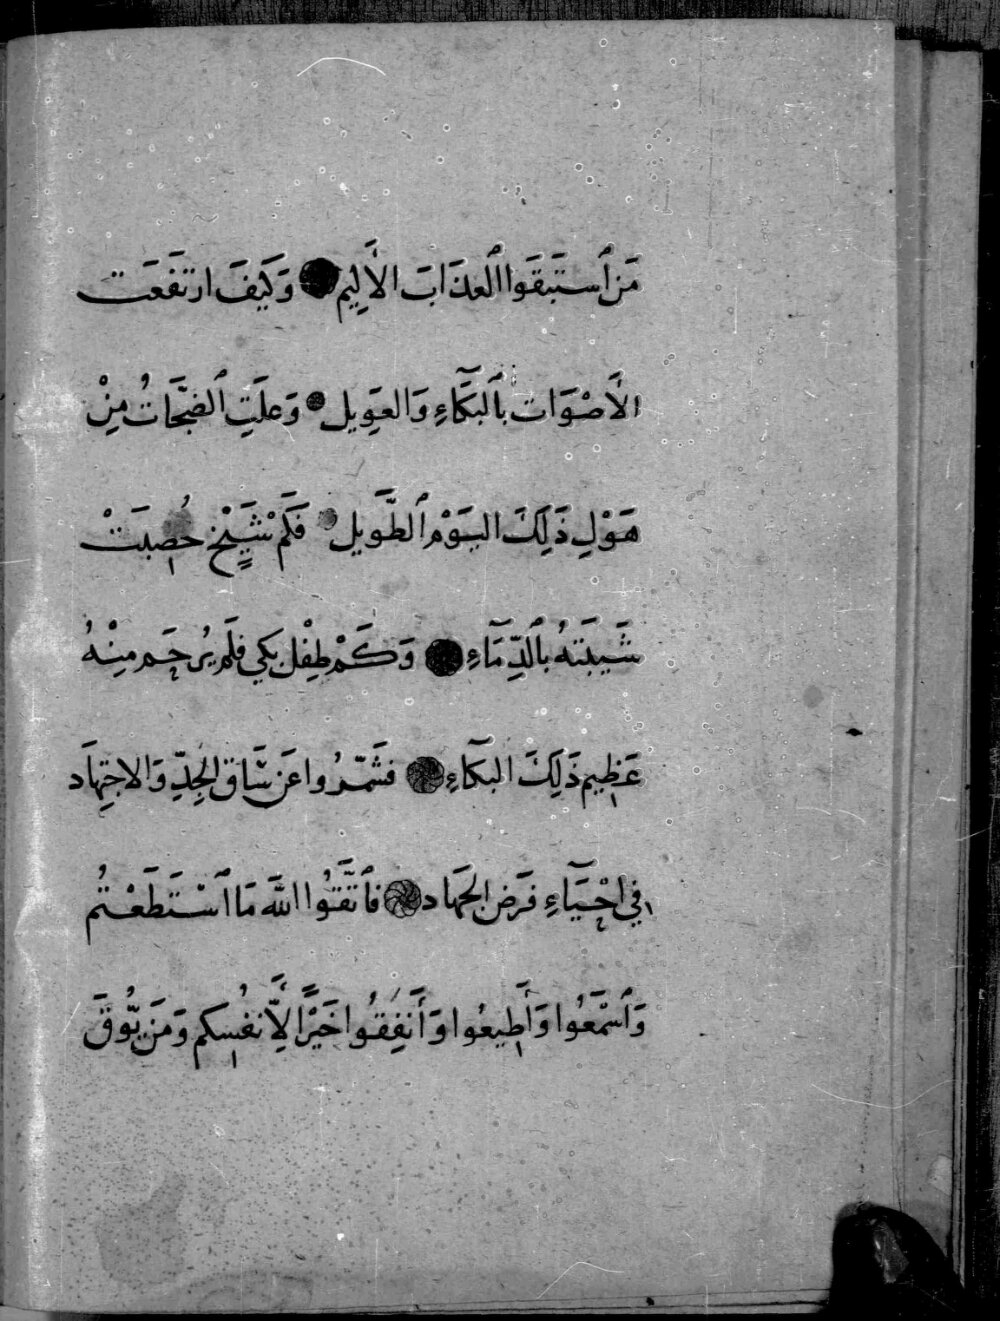 مَن ٱستَبَقَوا ٱلعذَابَ الأَلِيم ۝ وَكَيفَ ارتفَعَت
الأَصْوَات بٱلبكَآءِ وَالعَوِيل ۝ وَعلَتِ ٱلضجَّاتُ مِنْ
هَوْلِ ذَلِكَ اليَوْم ٱلطَّوِيل ۝ فَكَم شَيْخٍ خُضِبَتْ
شَيبَتهُ بٱلدِّمَآءِ ۝ وَكَمْ طِفْل بَكي فلَم يُرحَم مِنْهُ
عَظِيم ذَلِكَ البكآءِ ۝ فشَمّرُوا عَن سَّاق الجِدِّ وَالاجتِهَاد
في احْيَآءِ فَرَض الجهَاد ۝ فٱتَّقُوا اللَّهَ مَا ٱسْتَطَعْتُم
وَٱسْمَعُوا وَأَطِيعُوا وَأَنفِقُوا خَيْرًا لِّأَنفُسِكم وَمَن يُّوقَ